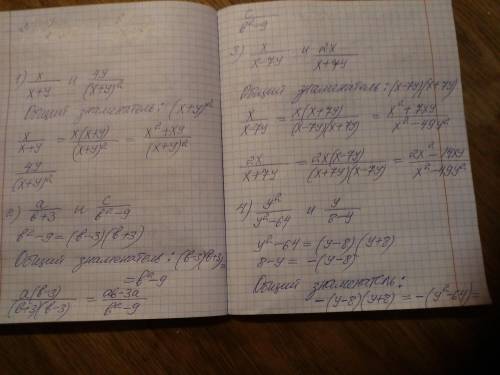 1) x/(x+y) и 4y/(x+y)²
Общий знаменатель: (x+y)²
x/(x+y) = x(x+y)/(x+y)² = (x²+xy)/(x+y)²
4y/(x+y)²
2) a/(b+3) и c/(b²-9)
b²-9=(b-3)(b+3)
Общий знаменатель: (b-3)(b+3)=
=b²-9
a(b-3)/((b+3)(b-3)) = (ab-3a)/(b²-9)
c/(b²-9)
3) x/(x-7y) и 2x/(x+7y)
Общий знаменатель: (x-7y)(x+7y)
x/(x-7y) = x(x+7y)/((x-7y)(x+7y)) = (x²+7xy)/(x²-49y²)
2x/(x+7y) = 2x(x-7y)/((x+7y)(x-7y)) = (2x²-14xy)/(x²-49y²)
4) y²/(y²-64) и y/(8-y)
y²-64=(y-8)(y+8)
8-y = -(y-8)
Общий знаменатель:
-(y-8)(y+8) = -(y²-64)=